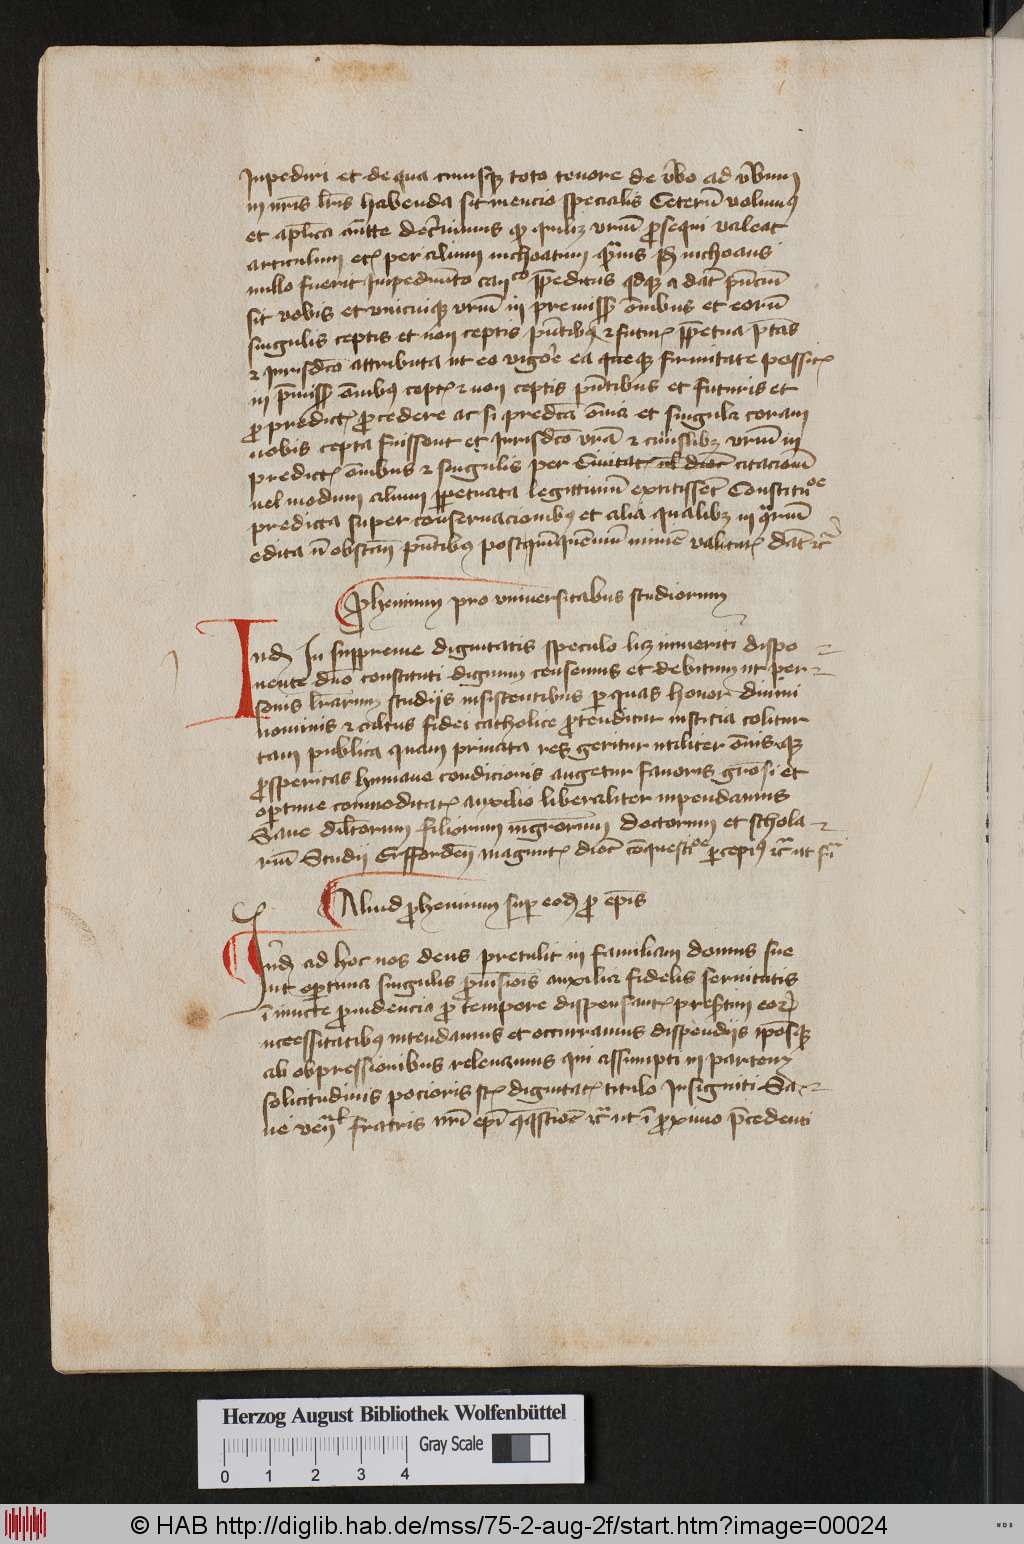 Inpediri et de qua cuiusq; toto tenore de v̄bo ad v̄bum
in nr̄is lr̄is habenda sit mencio specialis Ceterū volumus
et apl̄ica auc̄tte decernimus qd quilib; vrūm prosequi valeat
articulum etc per alium inchoatum qūis idē inchoans
nullo fuerit Inpedimēto canco īpeditus qdq; a dat pn̄cium
sit vobis et vnicuiq; vrūm in premiss ōmibus et eorū
singulis ceptis et non ceptis pn̄tibus & futur ppetua ptās
& Iurisdco attributa ut eo vigore ea queq; firmitate possit
in p̄miss ōmibus cept & non ceptis pn̄tibus et futuris et
pro predict procedere ac si predcā ōmia et singula coram
vobis cepta fuissent et Iurisdco vrā & cuiuslib; vrūm in
predict ōmibus & singulis per Citacionē
vel modum alium ppetuata legittimū extitisset Constitucōe
predicta super conseruacionibus et alia qualib; in 9rīum
edita n̄ obstan pn̄tibus post quinquenniū minime valitur Dat &c
Prohemium pro vniuersitatibus studiorum
Inno In suppreme dignitatis speculo lic; inmeriti dispo
nente dn̄o constituti dignum censemus et debitum ut per
sonis lr̄arum studijs insistentibus per quas honor diuini
nominis & cultus fidei catholice protenditur iusticia colitur
tam publica quam priuata res geritur utiliter ōmisq;
prosperitas humane condicionis augetur fauoris grōsi et
optime commoditat auxilio liberaliter inpendamus
Sane dilcorum filiorum mgrorum doctorum et schola
rium Studii Erfforden magunt dioc conquestioe percepimus &c ut supra
Aliud prohemium super eod pro epis
Inno ad hoc nos deus pretulit in familiam domus sue
ut oportuna singulis prouisiois auxilia fidelis seruitatis
īniuncte prudencia pro tempore dispensant presertim eor
necessitatibus intendamus et occurramus dispendijs iposq;
ab obpressionibus releuamus qui assumpti in partem
solicitudinis pocioris st dignitat titulo Insigniti Sa
ne ven̄l fratris nr̄i epī qqstioē &c ut ī proximo p̄cedenti
Herzog August Bibliothek Wolfenbüttel
Gray Scale
0 1 2 3 4
© HAB http://diglib.hab.de/mss/75-2-aug-2f/start.htm?image=00024